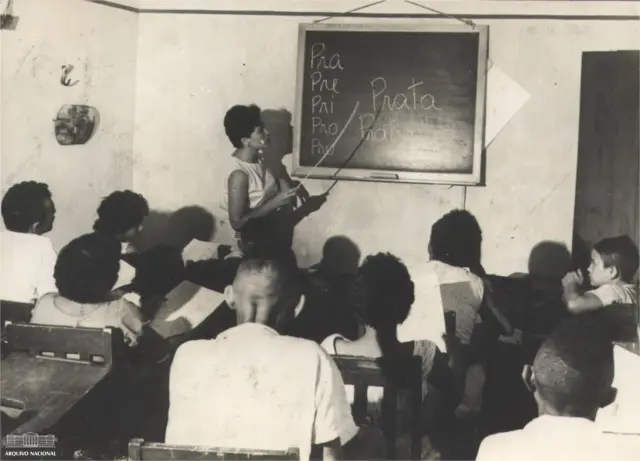 Pra
Pre
Pri
Pro
Pru
Prata
ARQUIVO NACIONAL